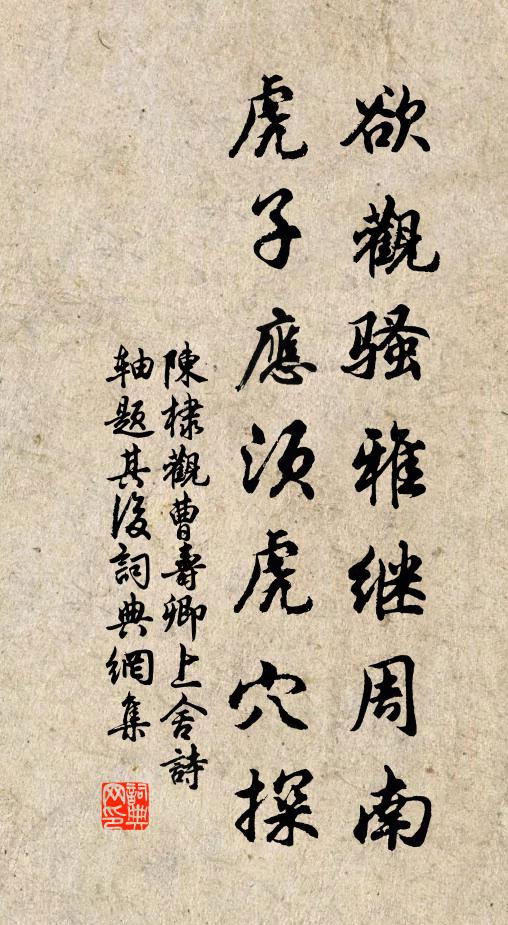 欲觀騷雅继周南
虎子應须虎穴探
陳棣觀曹壽卿上舍詩
轴题其後詞典網集
詞典网印